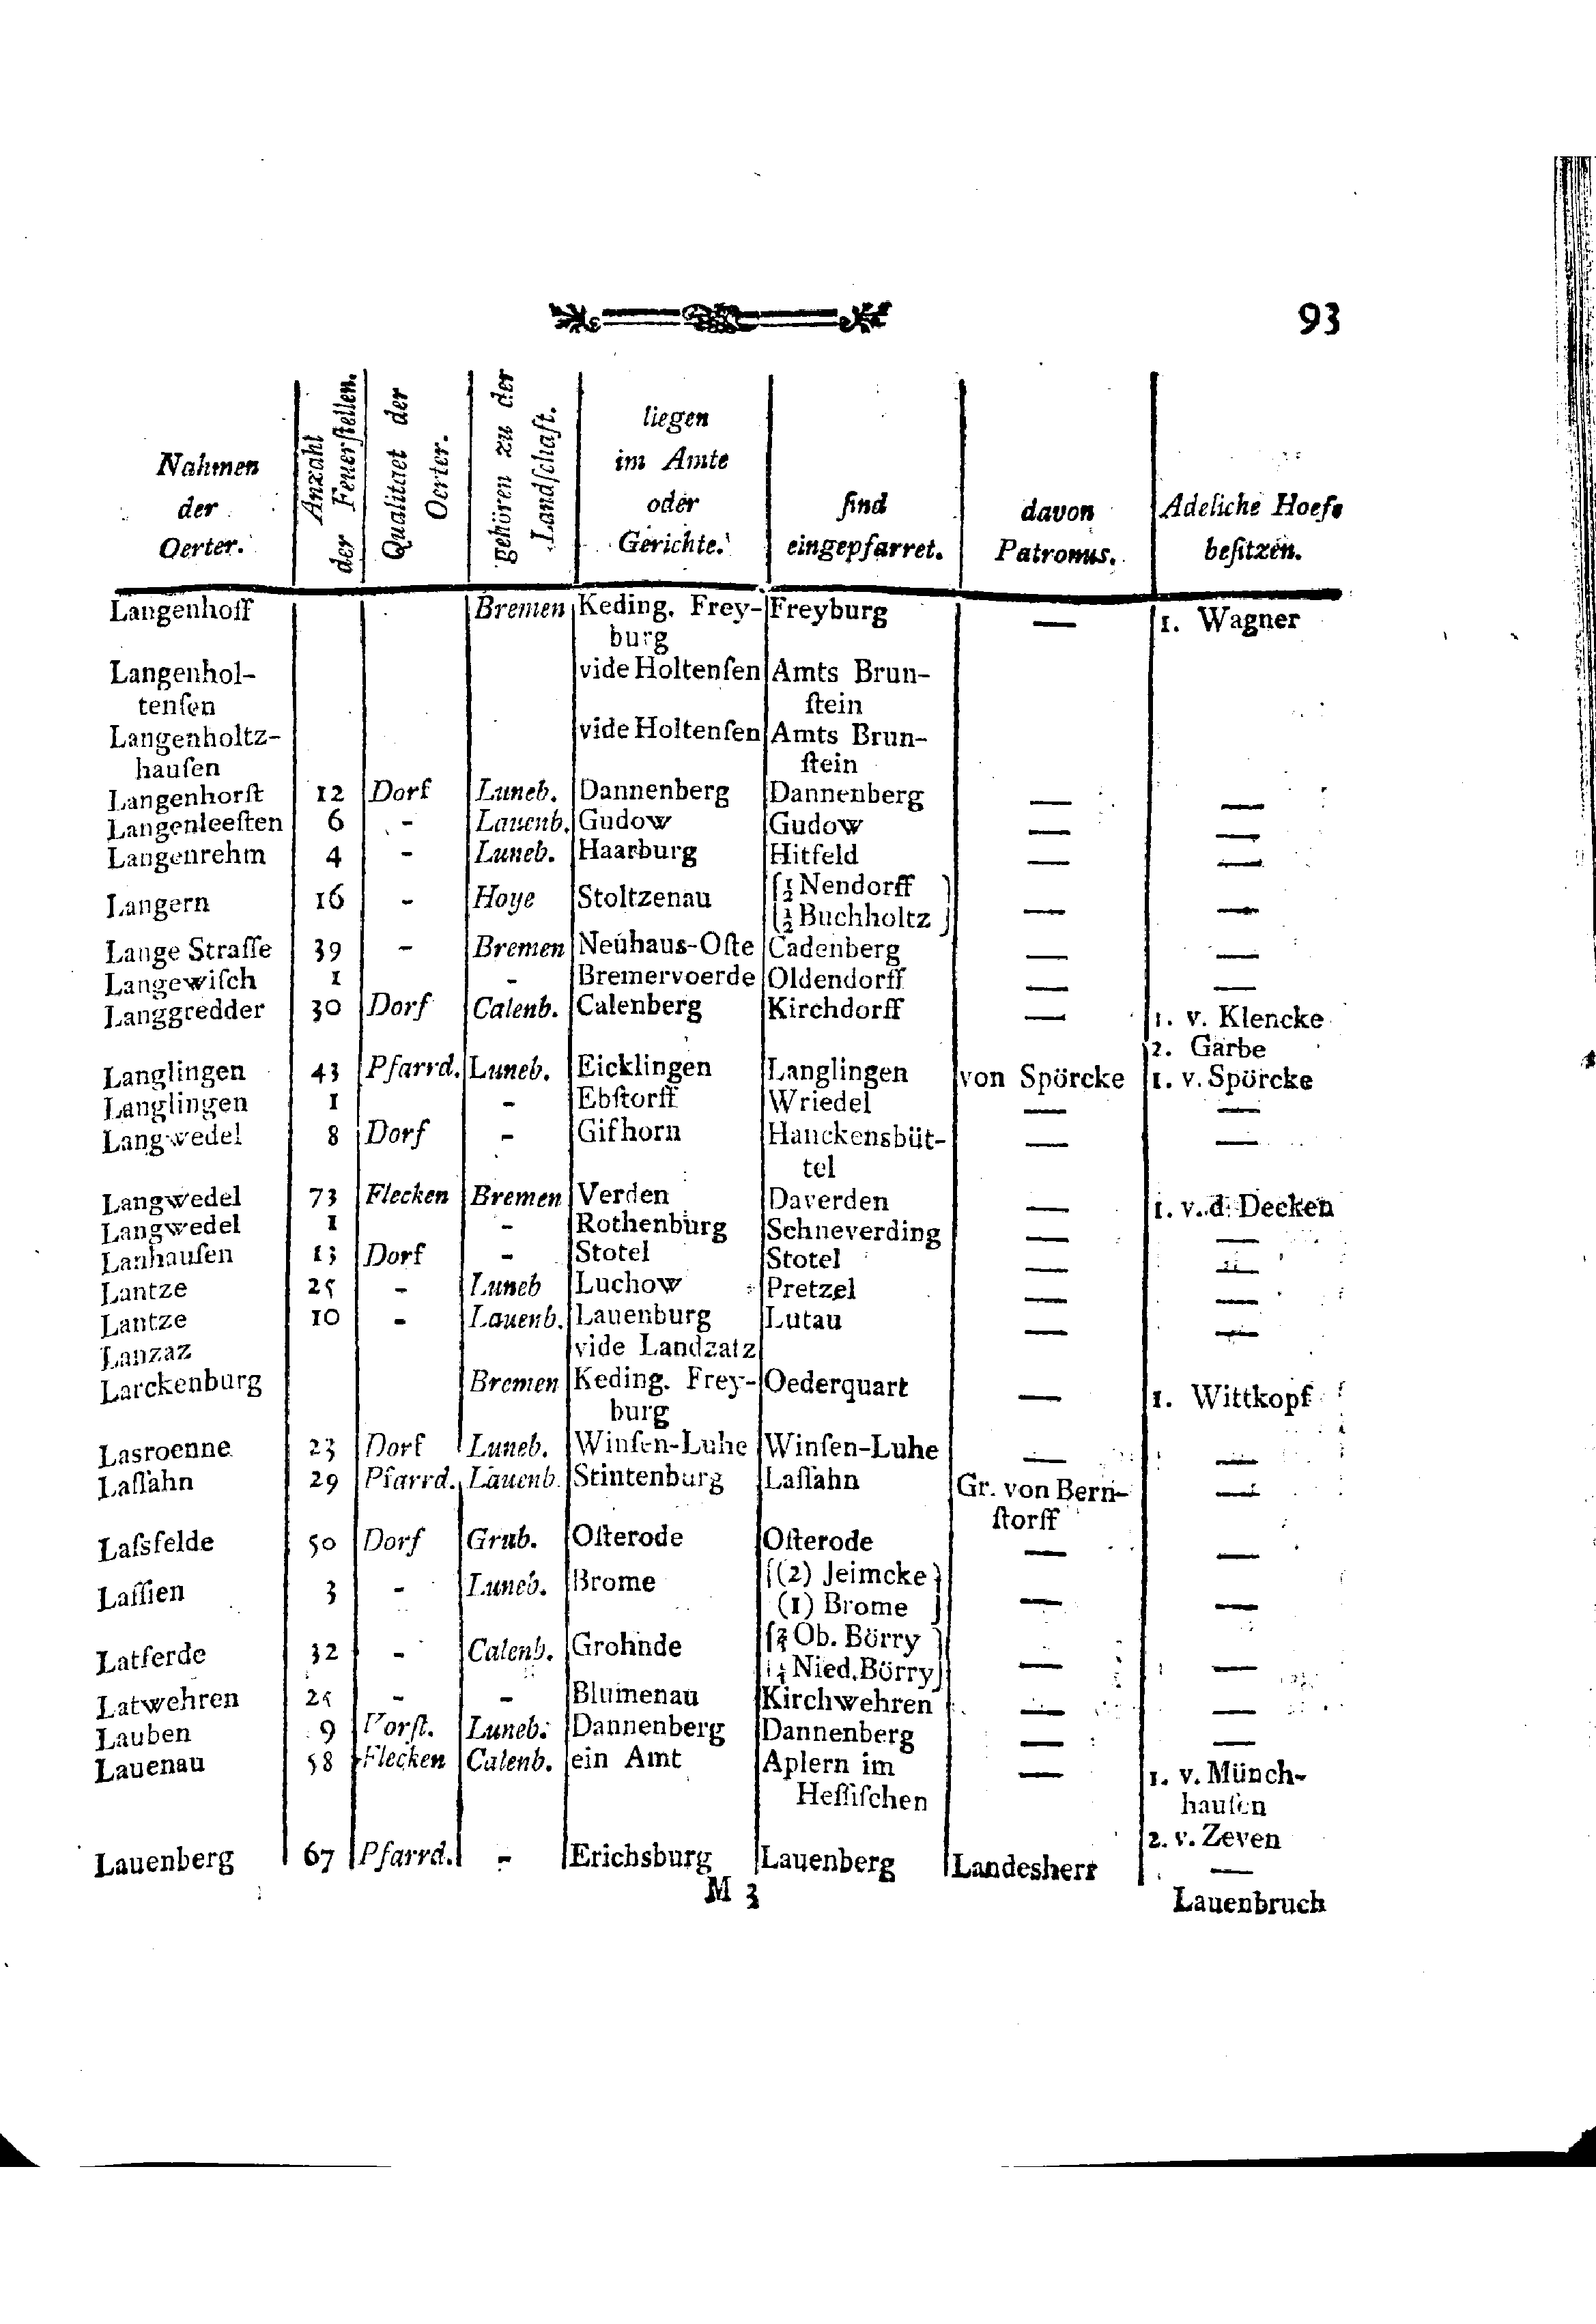 93
Nahmen der Oerter. | Anzahl der Feuerſtellen. | Qualitaet der Oerter. | gehören zu der Landſchaft. | liegen im Amte oder Gerichte. | ſind eingepfarret. | davon Patronus. | Adeliche Hoefe beſitzen.
Langenhoff Bremen Keding. Frey- Freyburg — 1. Wagner
burg
Langenhol- vide Holtenſen Amts Brun-
tenſen ſtein
Langenholtz- vide Holtenſen Amts Brun-
hauſen ſtein
Langenhorſt 12 Dorf Luneb. Dannenberg Dannenberg — —
Langenleeſten 6 - Lauenb. Gudow Gudow — —
Langenrehm 4 - Luneb. Haarburg Hitfeld — —
Langern 16 - Hoye Stoltzenau {½ Nendorff — —
{½ Buchholtz}
Lange Straſſe 39 - Bremen Neuhaus-Oſte Cadenberg — —
Langewiſch 1 - Bremervoerde Oldendorff — —
Langgredder 30 Dorf Calenb. Calenberg Kirchdorff — 1. v. Klencke
2. Garbe
Langlingen 43 Pfarrd. Luneb. Eicklingen Langlingen von Spörcke 1. v. Spörcke
Langlingen 1 - Ebſtorff Wriedel — —
Langwedel 8 Dorf - Gifhorn Hanckensbüt- — —
tel
Langwedel 73 Flecken Bremen Verden Daverden — 1. v. d. Decken
Langwedel 1 - Rothenburg Schneverding — —
Lanhauſen 13 Dorf - Stotel Stotel — —
Lantze 25 - Luneb Luchow Pretzel — —
Lantze 10 - Lauenb. Lauenburg Lutau — —
Lanzaz vide Landzatz
Larckenburg Bremen Keding. Frey- Oederquart — 1. Wittkopf
burg
Lasroenne 23 Dorf Luneb. Winſen-Luhe Winſen-Luhe — —
Laſſahn 29 Pfarrd. Lauenb. Stintenburg Laſſahn Gr. von Bern- —
ſtorff
Laſsfelde 50 Dorf Grub. Oſterode Oſterode — —
Laſſien 3 - Luneb. Brome {(2) Jeimcke} — —
(1) Brome }
Latferde 32 - Calenb. Grohnde {¾ Ob. Börry} — —
{¼ Nied. Börry}
Latwehren 25 - - Blumenau Kirchwehren — —
Lauben 9 Vorſt. Luneb. Dannenberg Dannenberg — —
Lauenau 58 Flecken Calenb. ein Amt Aplern im — 1. v. Münch-
Heſſiſchen hauſen
2. v. Zeven
Lauenberg 67 Pfarrd. - Erichsburg Lauenberg Landesherr —
M 3 Lauenbruch